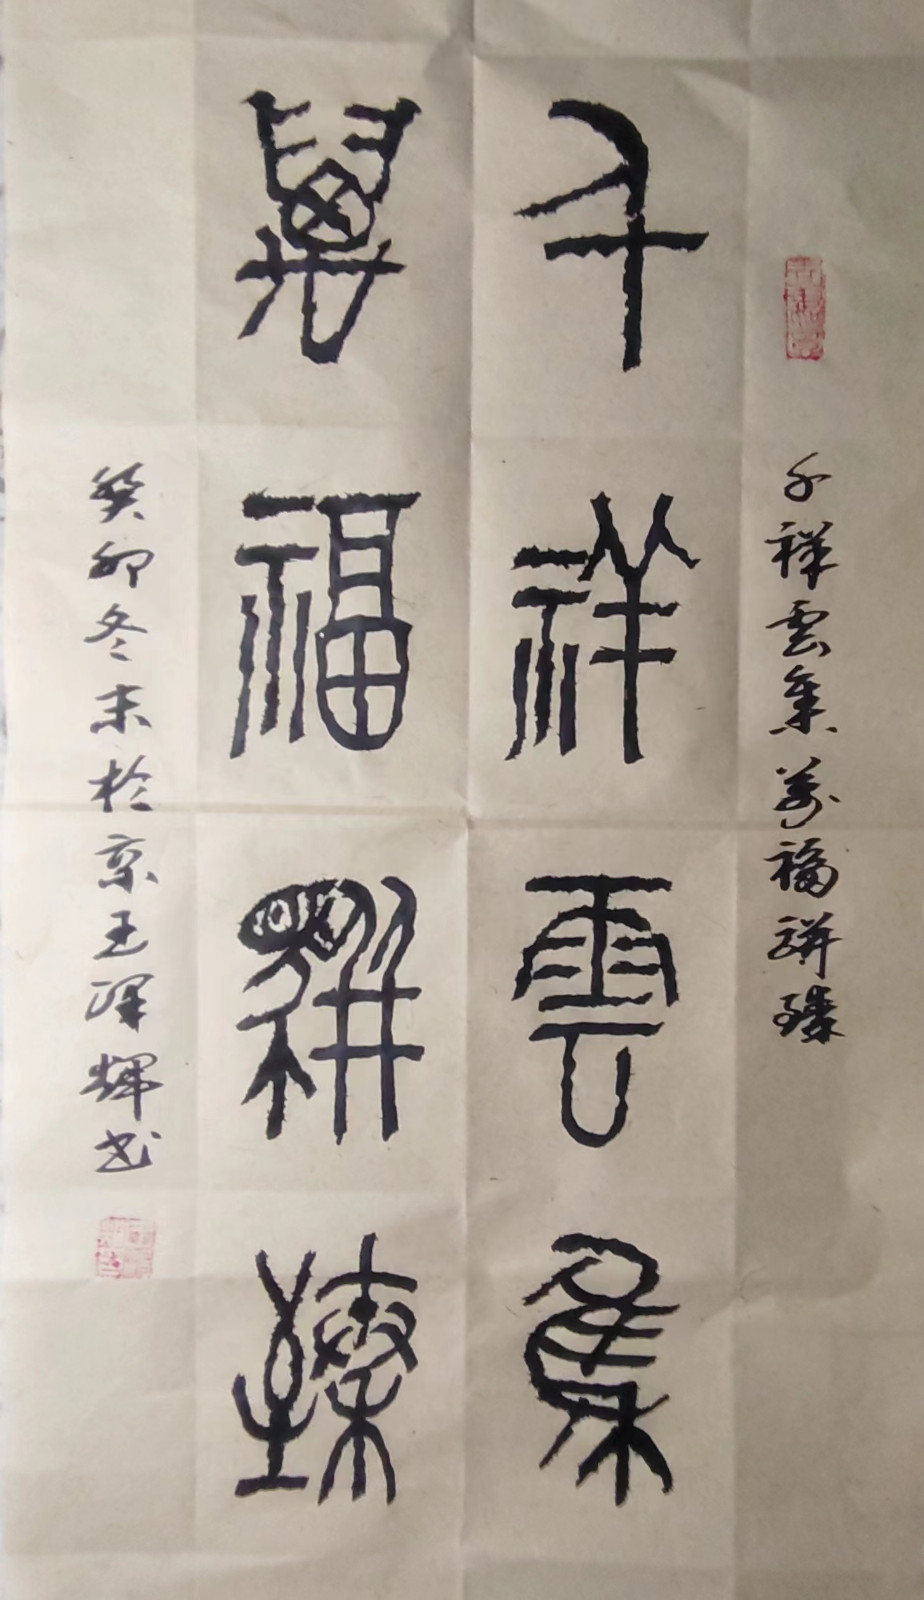 千祥雲集萬福骈臻
千祥雲集
萬福骈臻
癸卯冬末於京王澤輝书